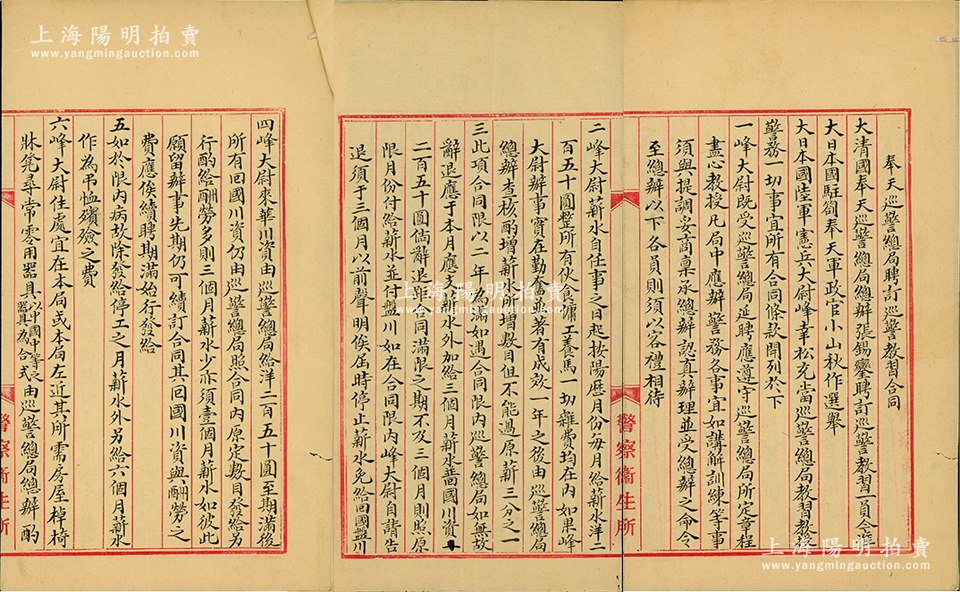 奉天巡警總局聘訂巡警教習合同
大清國奉天巡警總局總辦張錫鑾聘訂巡警教習一員今經
大日本國駐劄奉天軍政官小山秋作選舉
大日本國陸軍憲兵大尉峰幸松充當巡警總局教習教授
警務一切事宜所有合同條款開列於下
一峰大尉既受巡警總局延聘應遵守巡警總局所定章程
盡心教授凡局中應辦警務各事宜如講解訓練等事
須與提調妥商稟承總辦認真辦理並受總辦之命令
至總辦以下各員則須以客禮相待
警察衛生所
二峰大尉薪水自任事之日起按陽曆月份每月給薪水洋二
百五十圓整所有伙食傭工養馬一切雜費均在內如果峰
大尉辦事實在勤奮並著有成效一年之後由巡警總局
總辦查核酌增薪水所增數目但不能過原薪三分之一
三此項合同限以二年為滿如遇合同限內巡警總局如無故
辭退應于本月應支薪水外加給三個月薪水並回國川資
二百五十圓倘辭退距合同滿限之期不及三個月則照原
限月份付給薪水並付盤川如在合同限內峰大尉自請告
退須于三個月以前聲明俟屆時停止薪水免給回國盤川
四峰大尉來華川資由巡警總局給洋二百五十圓至期滿後
所有回國川資仍由巡警總局照合同內原定數目發給另
行酌給酬勞多則三個月薪水少亦須壹個月薪水如彼此
願留辦事先期仍可續訂合同其回國川資與酬勞之
費應俟續聘期滿始行發給
五如於限內病故除發給停工之月薪水外另給六個月薪水
作為弔恤殯殮之費
六峰大尉住處宜在本局或本局左近其所需房屋棹椅
牀凳尋常零用器具以中國中等之器具為合式由巡警總局總辦酌
警察衛生所
上海陽明拍賣
www.yangmingauction.com
上海陽明拍賣
www.yangmingauction.com
上海陽明拍賣
www.yangmingauction.com